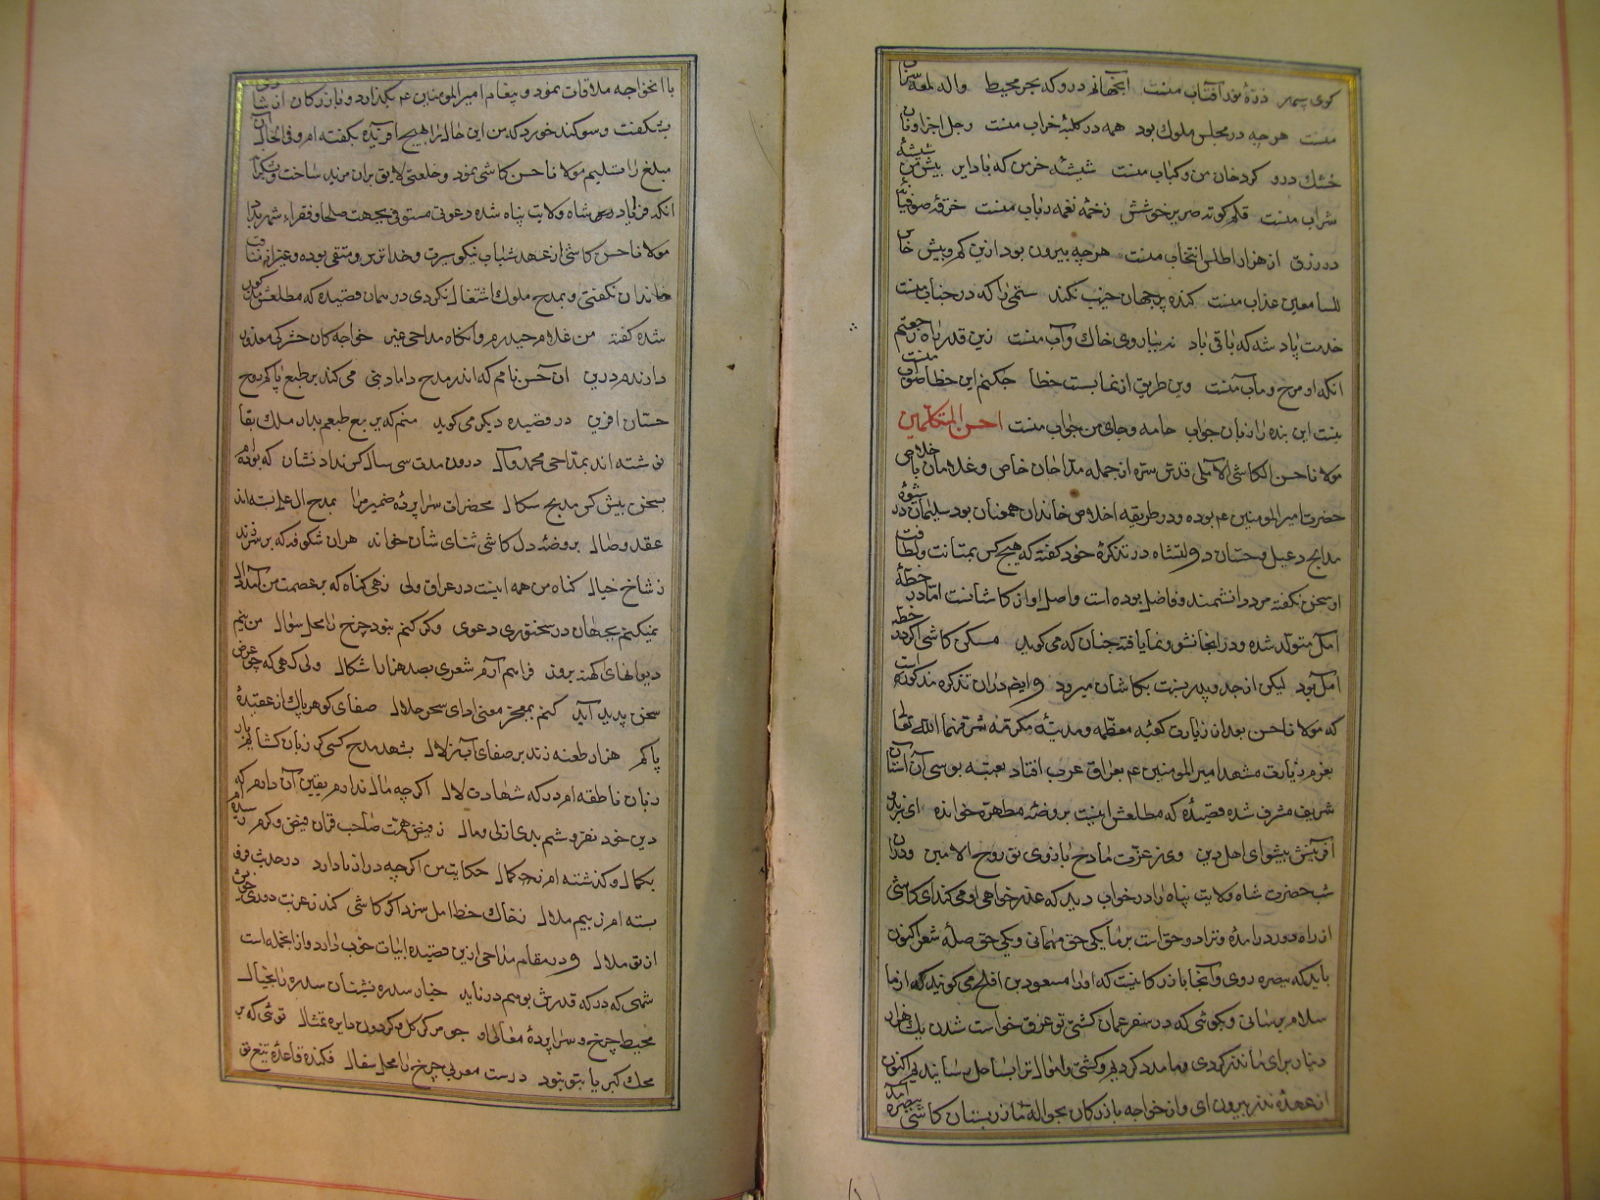 کوی سپهر ذرهٔ نور آفتاب منست آنجهانم درو که بحر محیط واله لمعهٔ سراب
منست هرچه در مجلس ملوک بود همه در کلبهٔ خراب منست رحل اجزا و نان
خشک درو گرد خان من و کباب منست شیشهٔ خرمن که باد این پیش من شیشهٔ
شراب منست قلم کوته صریر خوشش زخمه نغمه رباب منست خرقهٔ صوفیانهٔ
در رزق از هزار اطلس انتخاب منست هرچه بیرون بود ازین کم و بیش خاص
للسامعین عذاب منست کنده پیر جهان جنب نکند ستمی را که در جناب منست
خدمت پادشه که باقی باد نه ببازوی خاک و آب منست زین قدر راه رجعتم
آنکه او مرجع و مآب منست وین طریق از نمایست خطا چکنم این خطا صواب منست
نیست این بنده را زبان جواب جامه و جای من جواب منست احسن المتکلمین
مولانا حسن الکاشی الآملی قدس سره از جمله مداحان خاص و غلامان با خلاص
حضرت امیر المومنین عم بوده و در طریقه اخلاص خاندان همونان بود سلیمان در شیوهٔ
مدایح دعبل و حسان دولتشاه در تذکرهٔ خود گفته که هیچ کس بمتانت و لطافت
او سخن نگفته مرد دانشمند و فاضل بوده است و اصل او از کاشانست اما در خطهٔ
آمل متولد شده و در آنجا نشو و نما یافته چنان که می گوید مسکن کاشی اگر در خطهٔ
آمل بود لیکن از جد و پدر نسبت بکاشان میرود و ایضا دران تذکره مذکور است
که مولانا حسن بعد از زیارت کعبه معظمه و مدینهٔ مکرمه شرفهما الله تعالی
بعزم زیارت مشهد امیر المومنین عم بعراق عرب افتاد بعتبه بوسی آن آستان
شریف مشرف شده قصیدهٔ که مطلعش اینست بر روضهٔ مطهره خوانده ای ز بدو
آفرینش پیشوای اهل دین وی ز عزت مادح بازوی تو روح الامین و دران
شب حضرت شاه ولایت پناه را در خواب دید که عذر خواهی او می کند ای کاشی
از راه دور در آمدهٔ و ترا دو حق است بر ما یکی حق مهمانی و یکی حق صله شعر اکنون
باید که ببصره روی و آنجا بازرگانیست که او را مسعود بن افلح می گویند که از ما
سلام برسانی و بگوئی که در سفر عمان کشتی تو غرق خواست شدن یک هزار
دینار برای ما نذر کردی و ما مدد کردیم و کشتی و اموال ترا بساحل رسانیدیم اکنون
از عهدهٔ نذر بیرون ای و از خواجه بازرگان بحوالهٔ ما زر بستان کاشی ببصره آمد
با آنخواجه ملاقات نمود و پیغام امیر المومنین عم بگذارد و بازرگان از شادی
بشکفت و سوگند خورد که من این حال را بهیچ آفریده نگفته ام و فی الحال آن
مبلغ را تسلیم مولانا حسن کاشی نمود و خلعتی لایق بران مزید ساخت و بشکرانه
آنکه فریاد رس شاه ولایت پناه شده دعوتی مستوفی بجهت صلحا و فقراء شهر بداد
مولانا حسن کاشی از عهد شباب نیکو سیرت و خدا ترس و متقی بوده و غیر از مناقب
خاندان نگفتی و بمدح ملوک اشتغال نکردی در همان قصیده که مطلعش مذکور
شده گفته من غلام حیدرم وانگاه مداحی غیر خواجه کان حشر کی معذور
دارندم درین آن حسن نامم که اندر مدح داماد نبی می کند بر طبع پاکم روح
حسان آفرین در قصیده دیگر می گوید منم که بر ربع طبعم بدار ملک بقا
نوشته اند بمداحی محمد و آل درون مدت سی سال کس نداد نشان که بوده‌ام
بسخن پیش کس مدیح سگال مخدرات سرا پردهٔ ضمیر مرا بمدح آل علی بسته اند
عقد وصال بروضهٔ دل کاشی ثنای شان خواند هران شکوفه که بر سر زند
ز شاخ خیال گناه من همه اینست در عراق ولی زهی گناه که بر عصمت من آمد دال
نمیکنم بجهان در سخنوری دعوی وگر کنم نبود چرخ را محل سؤال من نیم
دیوانهای کهنه بروز فراهم آرم شعری بصد هزار اشکال ولی گهی که چو عرض
سخن پدید آید کنم بمعجز معنی ادای سحر حلال صفای گوهر پاک از عقیدهٔ
پاکم هزار طعنه زند بر صفای آب زلال بشهد مدح کسی کی زبان گشایم باز
زبان ناطقه ام در گه شهادت لال اگر چه مال ندارم یقین آن دارم که
دین خود نفروشم بدی از ولی و مال ز فیض همت صاحب قران فیض و کرم رسیده ام
بکمال و گذشته ام ز کمال حکایت من اگر چه دراز نا دارد در حدیث فرو
بسته ام ز بیم ملال ز خاک خطا آمل سزد اگر کاشی کند ز غربت دوری
از تو ملال و در مقام مداحی ازین قصیده ابیات خوب دارد و از انجمله است
شهی که درگه قدرش بوهم در ناید خیار سدره نشینان سدره را بخیال
محیط چرخ و سراپردهٔ معالی او چو مرکز گل و گردون دایره تمثال توئی که بر
محک کبریا بتو نبود درست مغربی چرخ را محل سفال فکنده قاعدهٔ تیغ تو